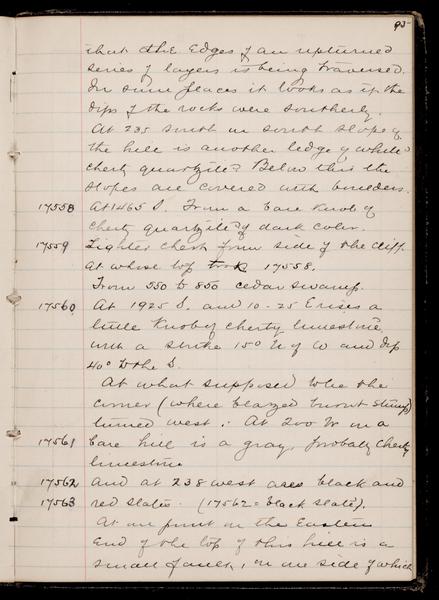 95
that the Edges of an upturned
series of layers is being traversed.
In some places it looks as if the
dips of the rocks were southerly.
At 235 south on south slope of
the hill is another ledge of white
cherty quartzite? Below this the
slopes are covered with boulders.
17558 At 1465 S. From a bare Knob of
cherty quartzite? of dark color.
17559 Lighter chert from side of the cliff
at whose top took 17558.
From 550 to 800 cedar swamp.
17560. At 1925 S. and 10-25 E rises a
little Knob of cherty limestone
with a strike 15° N of W and dip
40° to the S.
At what supposed to be the
corner (where blazed burnt stump)
turned west. At 200 W on a
17561 bare hill is a gray, probably cherty
limestone
17562 and at 238 west ares black and
17563 red slates. (17562 = black slate).
At one point on the Eastern
End of the top of this hill is a
small , on one side of which